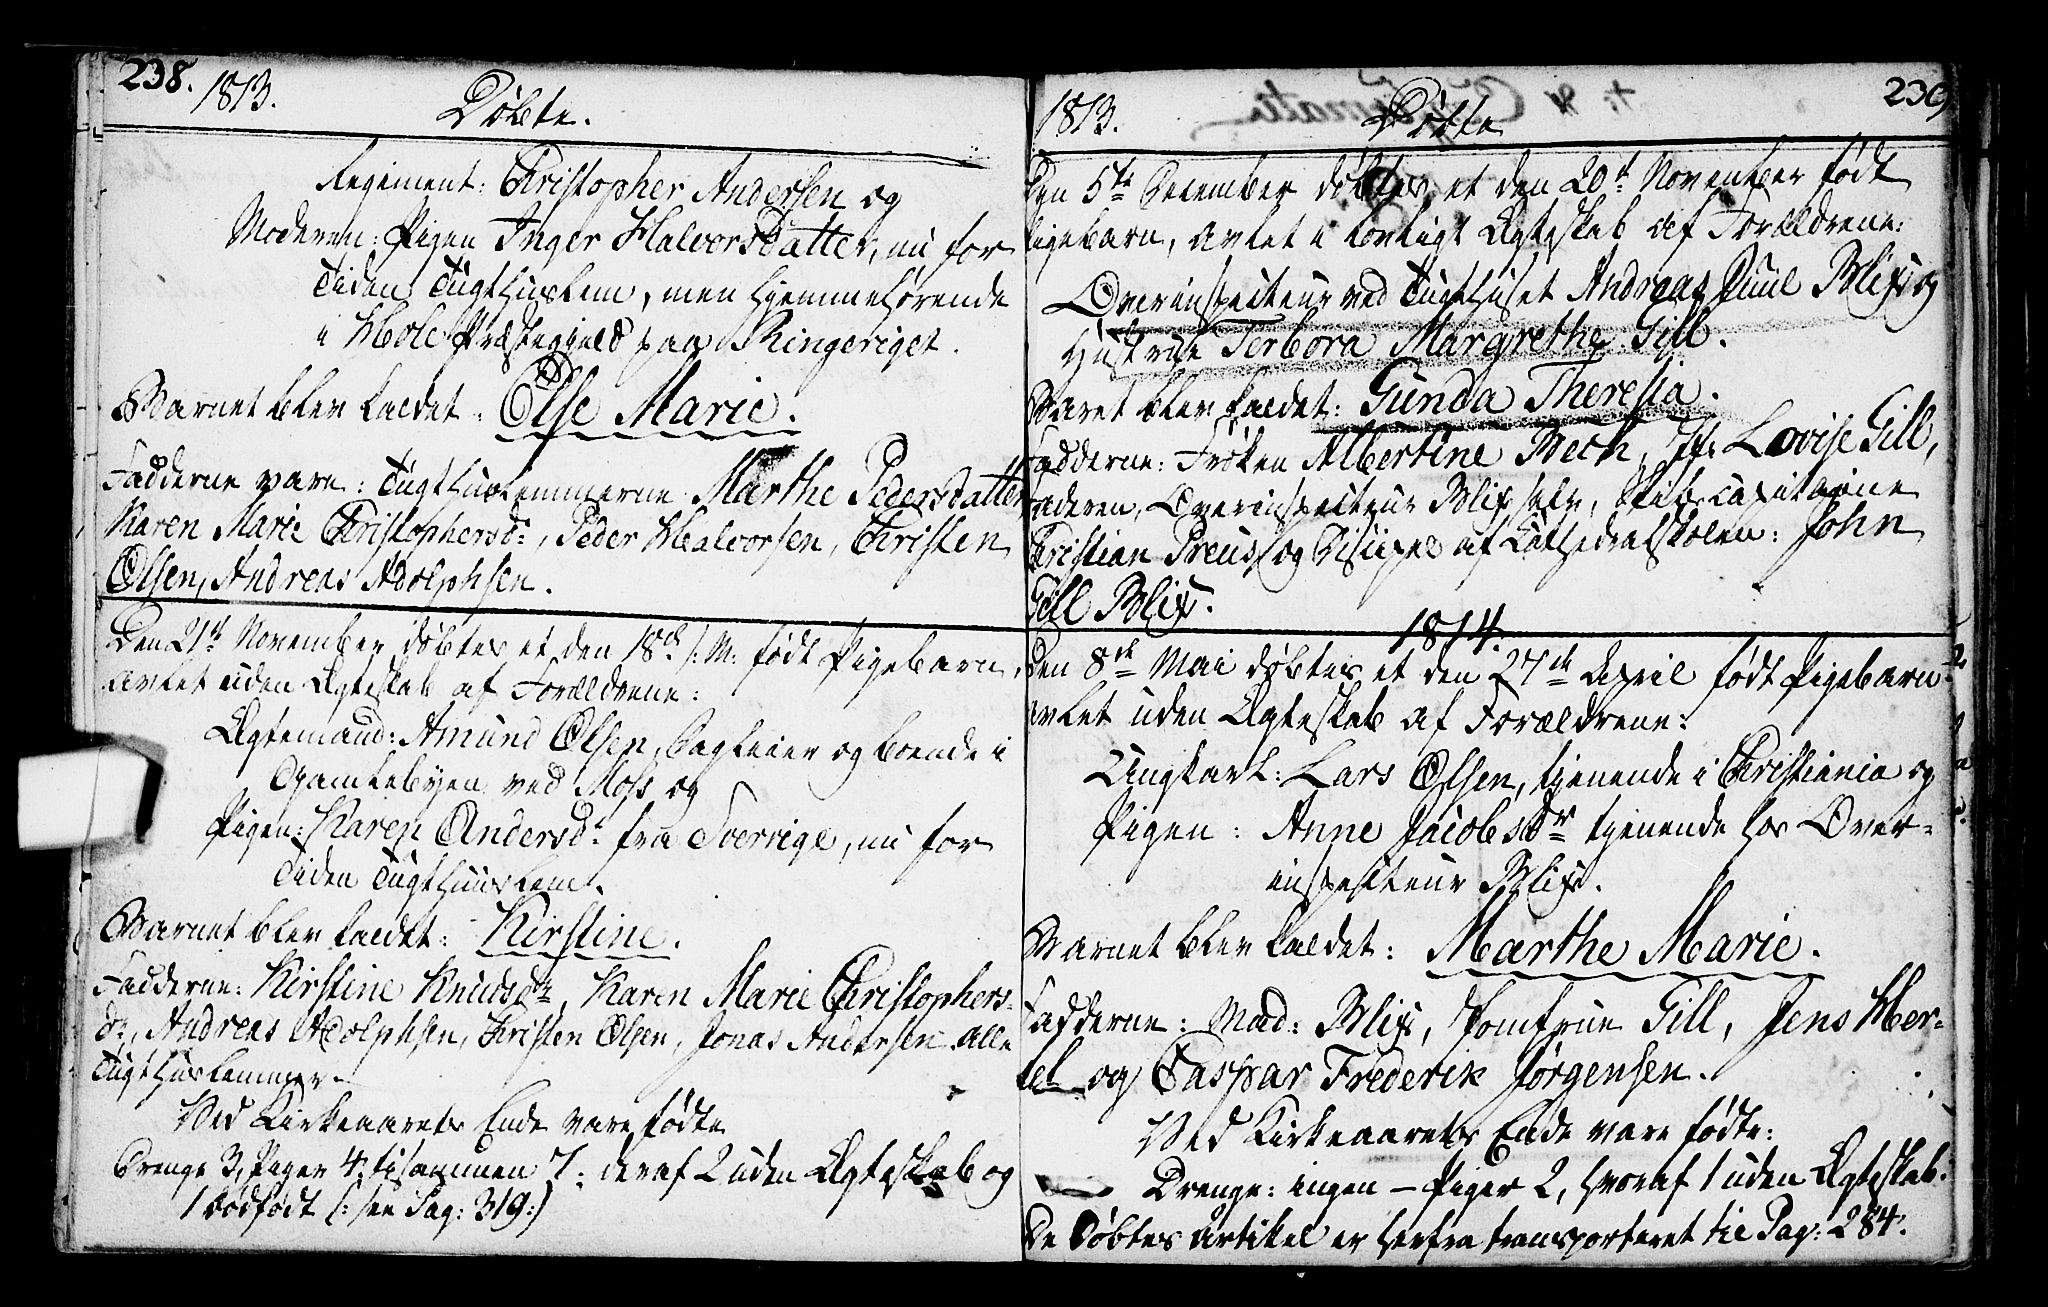 238.
1813.
Döbte.
Regiment: Christopher Andersen og
Moderen: Pigen Inger Halvorsdatter, nu for
Tiden Tugthuslem, men hjemmehörende
i Hole Præstegield paa Ringeriget.
Barnet blev kaldet: Else Marie.
Fadderne vare: Tugthuslemmerne Marthe Pedersdatter
Karen Marie Christophersdr., Peder Halvorsen, Christen
Olsen, Andreas Adolphsen.
Den 21de November döbtes et den 18de s: M: födt Pigebarn,
avlet uden Ægteskab af Forældrene:
Ægtemand: Amund Olsen, Sagfeier og boende i
Gamlebyen ved Moss og
Pigen: Karen Andersdr. fra Sverrige, nu for
Tiden Tugthuuslem.
Barnet blev kaldet: Kirstine.
Fadderne: Kirstine Knudsdr., Karen Marie Christophers-
dr., Andreas Adolphsen, Christen Olsen, Jonas Andersen. Alle
Tugthuslemmer.
Ved Kirkeaarets Ende vare födte
Drenge 3, Piger 4, tilsammen 7: deraf 2 uden Ægteskab og
1 dödfödt (: see Pag: 319:)
239
1813.
Döbte
Den 5te December döbtes et den 20de November födt
Pigebarn, avlet i lovligt Ægteskab af Forældrene:
Overinspecteur ved Tugthuset Andreas Juul Blix og
Hustrue Torbora Margrethe Gill.
Barnet blev kaldet: Gunda Theresia.
Fadderne: Fröken Albertine Bech, Jf: Lovise Gill,
Faderen, Overinspecteur Blix selv, Skibscapitaine
Christian Preus, og Discipel af Cathedralskolen: John
Gill Blix.
1814.
Den 8de Mai döbtes et den 27de April födt Pigebarn
avlet uden Ægteskab af Forældrene:
Ungkarl: Lars Olsen, tjenende i Christiania og
Pigen: Anne Jacobsdr tjenende hos Over-
inspecteur Blix.
Barnet blev kaldet: Marthe Marie.
Fadderne: Mad: Blix, Jomfrue Gill, Jens Her-
tel og Caspar Frederik Jörgensen.
Ved Kirkeaarets Ende vare födte:
Drenge: ingen - Piger 2, hvoraf 1 uden Ægteskab.
De Döbtes Artikel er herfra transporteret til Pag: 284.